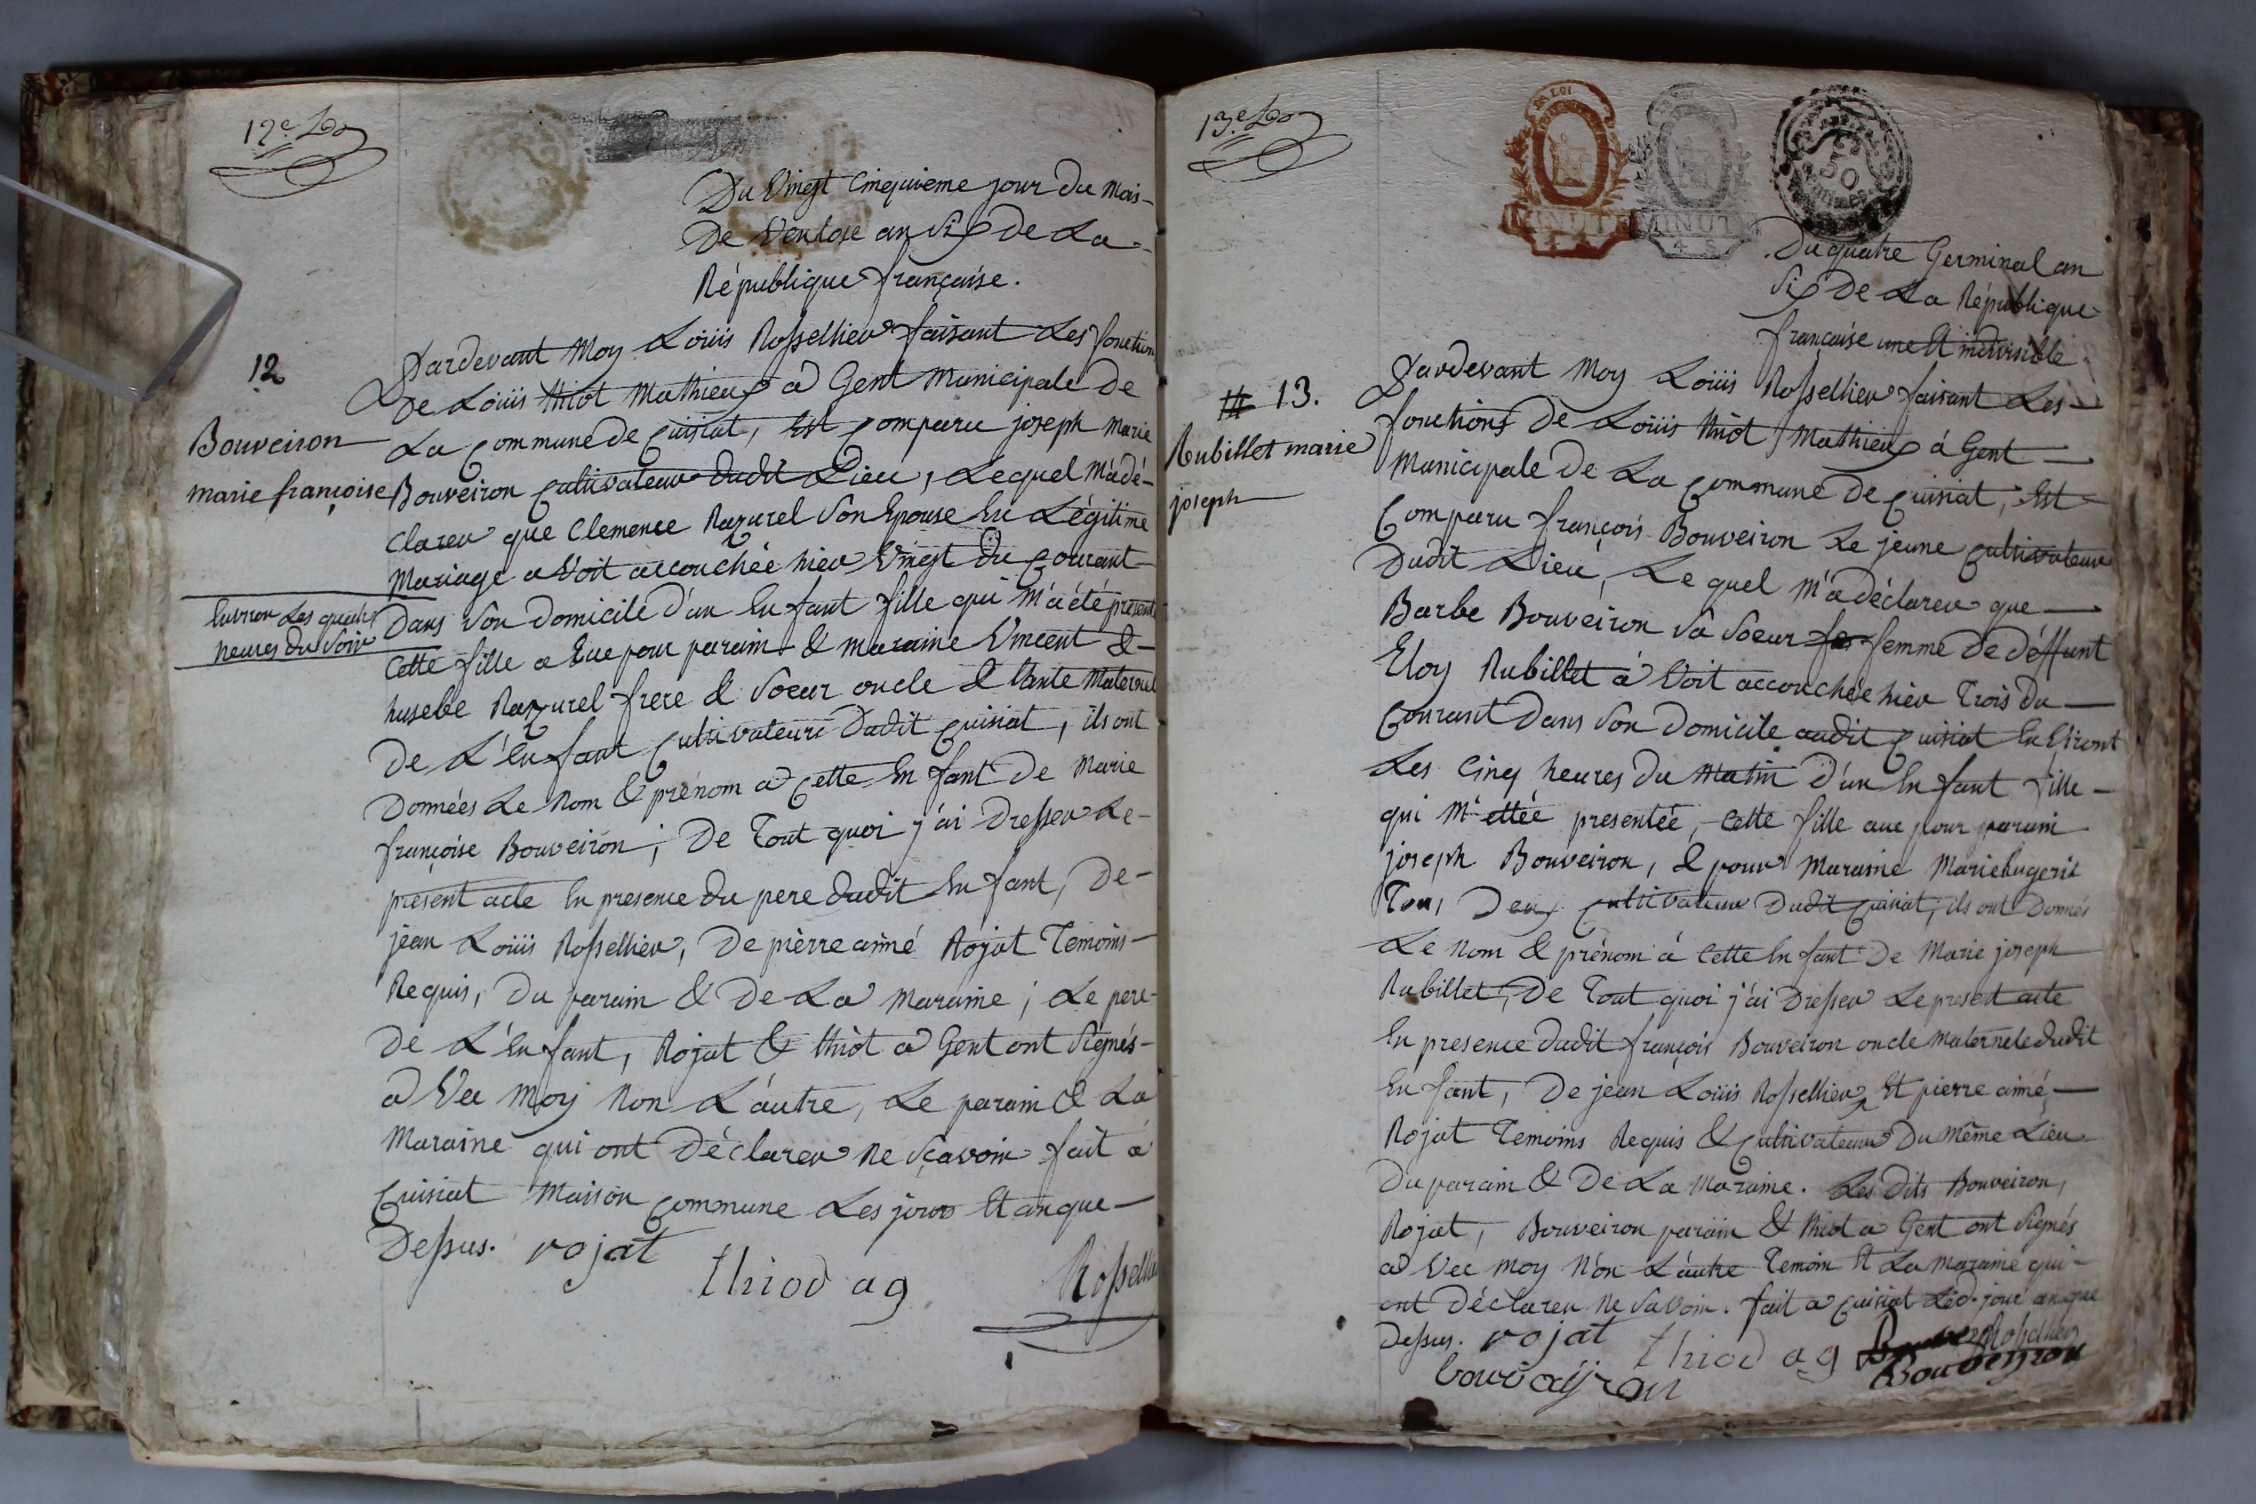 12e.
Du Vingt Cinquieme jour du Mois
De Ventose an Six De La
République française.
12
Bouveiron
marie françoise
Pardevant Moy Loüis Rossellier faisant Les fonction
De Loüis thiot Mathieux a Gent Municipale De
La Commune de Cuisiat, Est Comparu joseph Marie
Bouveiron Cultivateur dudit Lieu, Lequel M'a dé-
clarer que Clemence Razurel Son Epouse En Légitime
Mariage a Voit accouchée hier Vingt du Courant
Environ Les quatre
heures du Soir
Dans Son Domicile d'un Enfant fille qui M'a été present
Cette fille a Eue pour parain & maraine Vincent &
husebe Razurel frere & Soeur oncle & tante Maternel
De L'Enfant Cultivateurs Dudit Cuisiat, ils ont
Données Le Nom & prénom a Cette Enfant De Marie
françoise Bouveiron; De Tout quoi j'ai Dresser Le
present acte En presence du pere dudit Enfant, De
jean Loüis Rossellier, De pièrre aimé Rojat Temoins
Requis, Du parain & De La Maraine; Le pere
De L'Enfant, Rojat & thiot a Gent ont Signés
a Vec Moy Non L'autre, Le parain & La
Maraine qui ont Déclarer Ne Sçavoir fait a
Cuisiat Maison Commune Les jours Et an que
Dessus. rojat
thiod ag
Rossellier
13e.
MINUT
MINUT
4 S
50
Du quatre Germinal an
Six De La République
française une Et indivisible
13.
Rubillet marie
joseph
Pardevant Moy Loüis Rossellier faisant Les
fonctions De Loüis thiot Mathieux á Gent
Municipale De La Commune De Cuisiat, Est
Comparu françois Bouveiron Le jeune Cultivateur
Dudit Lieu, Le quel M'a déclarer que
Barbe Bouveiron Sa Soeur femme De Déffunt
Eloy Rubillet à Voit accouchée hier Trois Du
Courant Dans Son Domicile audit Cuisiat En Eiront
Les Cinq heures Du Matin D'un Enfant fille
qui M'ettée presentée, Cette fille aue pour parain
joseph Bouveiron, & pour Maraine Marie
Tous Deux Cultivateur Dudit Cuisiat, ils ont Donnés
Le Nom & prénom á Cette Enfant De Marie joseph
Rubillet, De Tout quoi j'ai Dresser Le present acte
En presence dudit françois Bouveiron oncle Maternele dudit
Enfant, De jean Loüis Rossellier Et pierre aimé
Rojat Temoins Requis & Cultivateur Du Même Lieu
Du parain & De La Maraine. Les Dits Bouveiron,
Rojat, Bouveiron parain & thiot a Gent ont Signés
a Vec Moy Non L'autre Temoin Et La Maraine qui
ont Déclarer Ne Savoir. fait a Cuisiat Led. jour an que
Dessus. rojat
thiod ag
Rossellier
Bouveyron